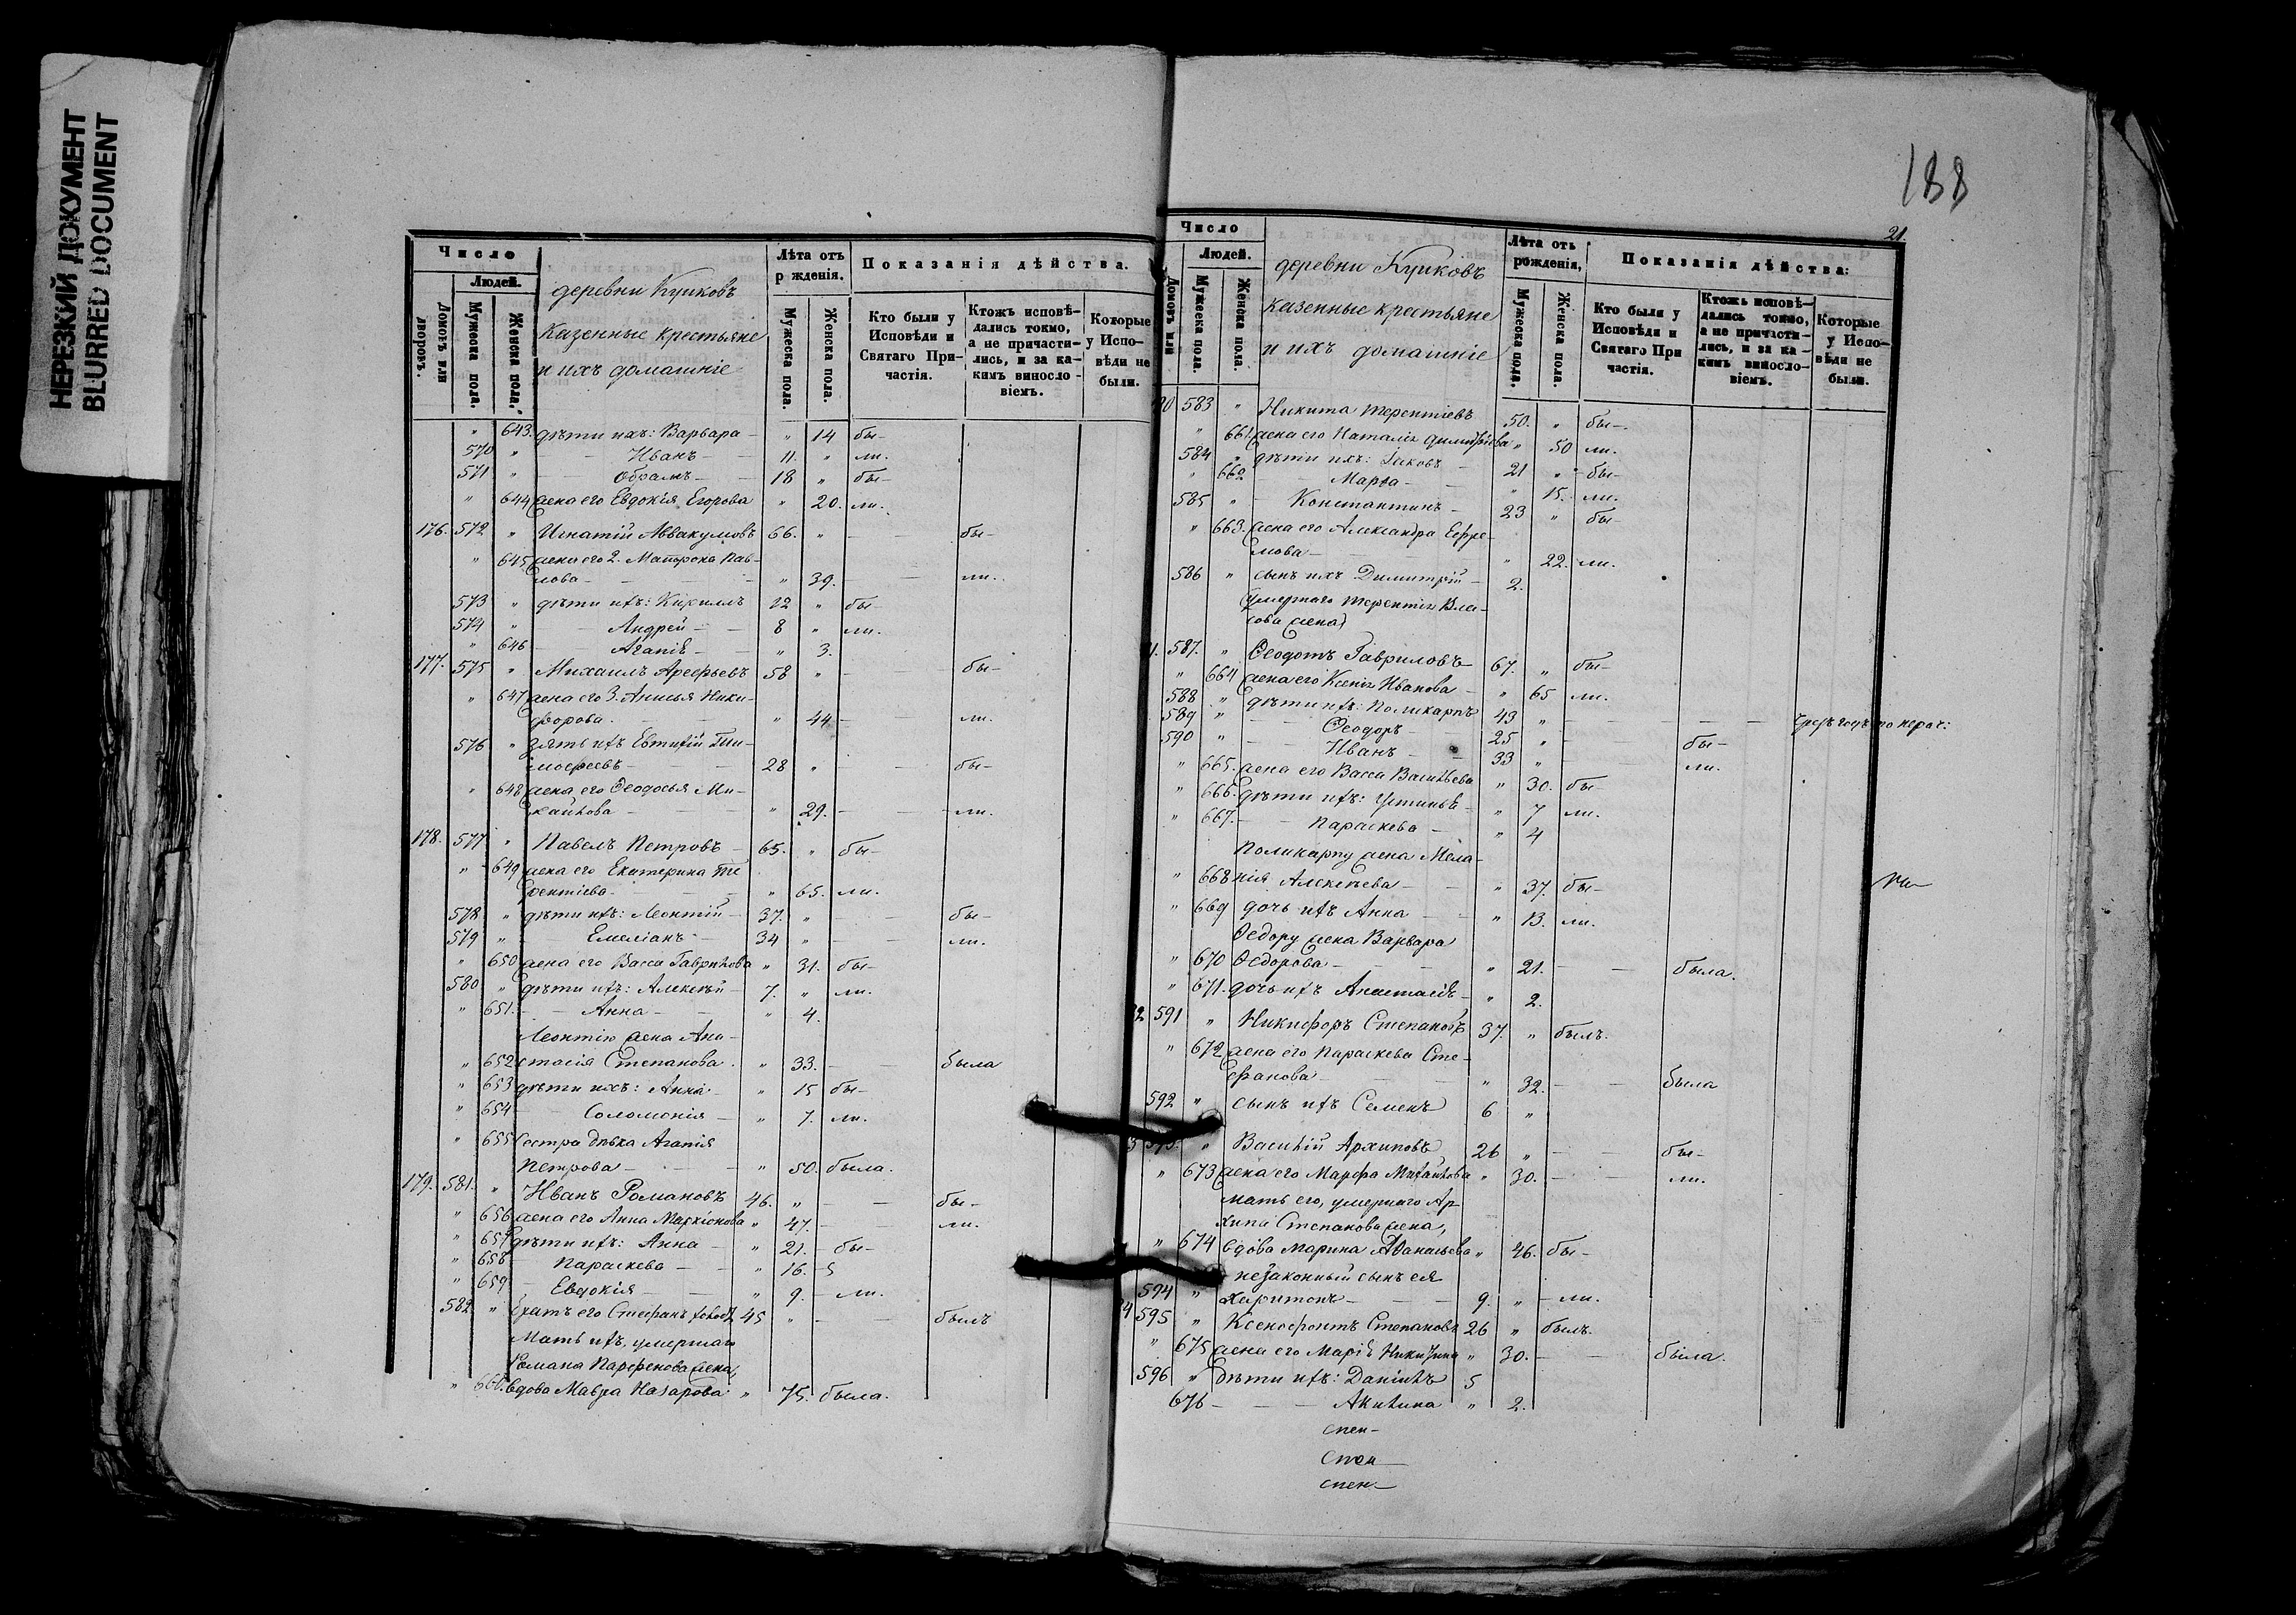 НЕРЕЗКИЙ ДОКУМЕНТ
BLURRED DOCUMENT
Число
Людей.
Домовъ или дворовъ.
Мужеска пола.
Женска пола.
деревни
казенные крестьяне
и ихъ домашніе
Лѣта отъ
р жденія.
Мужеска пола.
Женска пола.
Показанія дѣйства.
Кто были у
Исповѣди и
Святаго При-
частія.
Ктожъ исповѣ-
дались токмо,
а не причасти-
лись, и за ка-
кимъ винослo-
віемъ.
Которые
у Испо-
вѣди не
были.
" 643. дѣти ихъ: Варвара - " 14 бы-
570 " - Иванъ - 11. " ли.
571 " - Обрамъ - 18 " бы-
" 644 жена его Евдокія Егорова " 20. ли.
176. 572 " Игнатій Аввакумовъ 66. " - - бы-
" 645 жена его 2. Матрона Пав-
лова - " 39. - - ли.
573 " дѣти ихъ: Кириллъ 12 " бы-
574 " - Андрей - 8 " ли.
" 646 - Агапія - " 3.
177. 575 " Михаилъ Арефьевъ 58 " - бы-
" 647 жена его 3. Анисья Ники-
форова. " 44. - - ли.
576 " зять ихъ Евтихій Ти-
мофеевъ - 28 " - - бы-
" 648 жена его Ѳеодосья Ми-
хайлова - " 29. - - ли.
178. 577 " Павелъ Петровъ - 65. " бы-
" 649 жена его Екатерина Те
рентіева - " 65. ли.
578 " дѣти ихъ: Леонтій - 37. " - - бы-
579 " - Емеліанъ - 34 " - - ли.
" 650 жена его Васса Гаврилова " 31. бы-
580 " дѣти ихъ: Алексѣй - 7. " ли.
" 651. - Анна - " 4.
Леонтію жена Ана-
" 652 стасія Степанова. " 33. - - была
" 653 дѣти ихъ: Анна - " 15 бы-
" 654 - Соломонія - " 7. ли.
" 655 Сестра дѣвка Агапія
Петрова - " 50. была.
179. 581. " Иванъ Романовъ 46. " - - бы-
" 656 жена его Анна " 47. - - ли.
" 657 дѣти ихъ: Анна - " 21. - бы-
" 658 - Параскева - " 16. -
" 659 - Евдокія - " 9. - ли.
582 " братъ его Стефанъ 45 " - - былъ
Мать ихъ, умершаго
Романа Парфенова жена,
" 660. вдова Мавра Назарова " 75. была.
188
21.
Число
Людей.
Домовъ или
Мужеска пола.
Женска пола.
деревни
казенные крестьяне
и ихъ домашніе
Лѣта отъ
рожденія,
Мужеска пола.
Женска пола.
Показанія дѣйства:
Кто были у
Исповѣди и
Святаго При
частія.
Ктожъ исповѣ-
дались токмо,
а не причасти-
лись, и за ка-
кимъ винослo-
віемъ.
Которые
у Испо-
вѣди не
были.
0 583 " Никита Терентіевъ 50. " бы-
" 661. жена его Наталія Димитріева " 50 ли.
584 " дѣти ихъ: Іаковъ - 21 " бы-
" 662 - Марѳа - " 15. ли.
585 " - Константинъ - 23 " бы-
" 663. жена его Александра Ефре-
мова - " 22. ли.
586 " сынъ ихъ Димитрій - 2.
(умершаго Терентія Вла-
сова жена)
1. 587. " Ѳеодотъ Гавриловъ - 67. " бы-
" 664 жена его Ксенія Иванова - " 65 ли.
588 " дѣти ихъ: Поликарпъ 43 " - - -
589 " - Ѳеодоръ - 25 " - бы-
590 " - Иванъ - 33 " - ли.
" 665. жена его Васса Васильева " 30. бы-
" 666. дѣти ихъ: Устинья - " 7 ли.
" 667. - Параскева - " 4
Поликарпу жена Мела-
" 668 нія Алексеева - " 37. бы-
" 669 дочь ихъ Анна - " 13. ли.
Ѳедору жена Варвара
" 670 Ѳедорова - " 21. - - была.
" 671. дочь ихъ Анастасія - " 2.
2 591 " Никифоръ Степановъ 37. " былъ.
" 672 жена его Параскева Сте-
фанова " 32. - - была
592 " сынъ ихъ Семенъ 6 "
3 593. " Василій Архиповъ 26 " - бы-
" 673 жена его Марфа Михайлова " 30. - - ли.
мать его, умершаго Ар-
хипа Степанова жена,
" 674 вдова Марина Аѳанасьева " 46. бы-
незаконный сынъ ея
594 " Харитонъ - 9. " - ли.
4 595 " Ксенофонтъ Степановъ 26 " былъ.
" 675 жена его Марія Никитина " 30. - - была.
596 " Дѣти ихъ: Даніилъ 5
676 - - Акилина " 2.